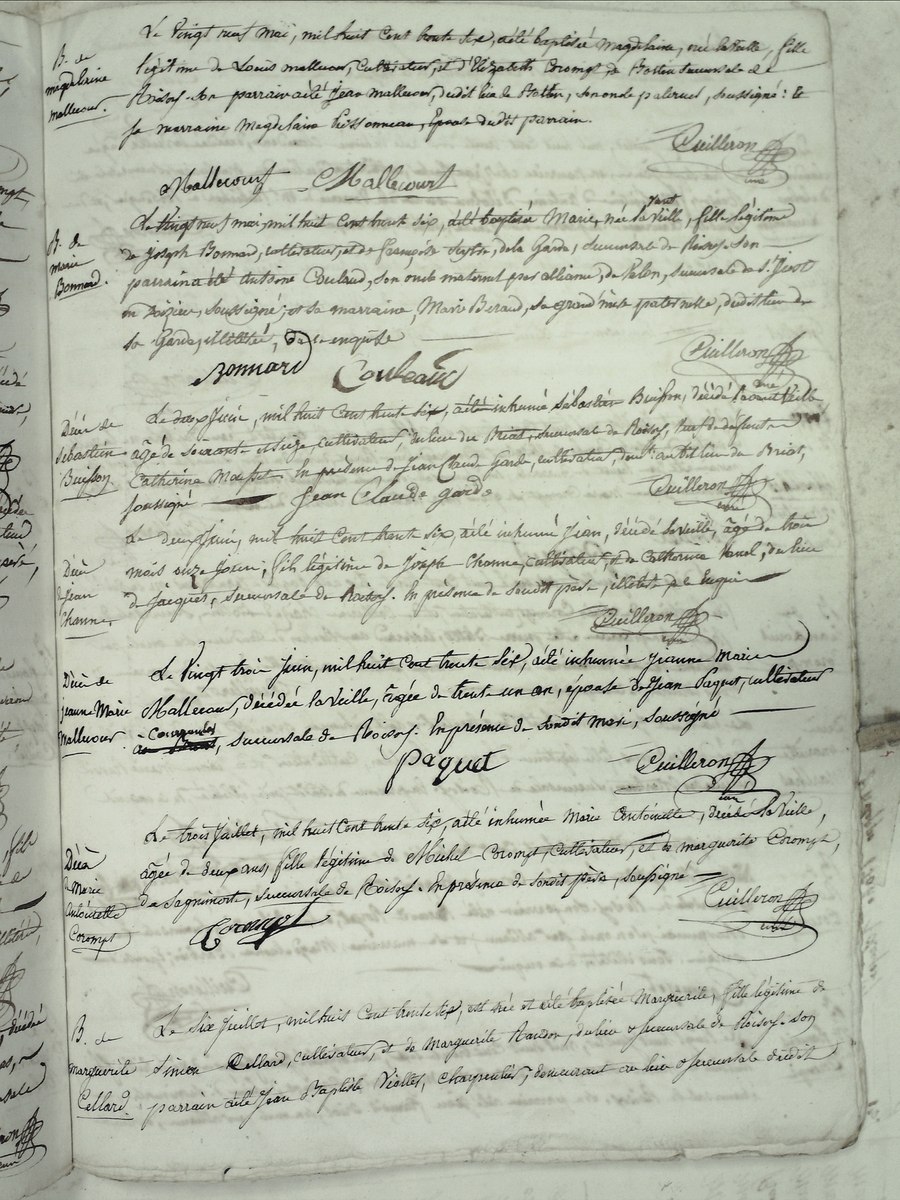 B. de
magdelaine
mallecour.
Le vingt neuf mai, mil huit cent trente six, a été baptisée Magdelaine, née la veille, fille
légitime de Louis mallecour, cultivateur, et d'Elizabeth Corompt de Bottu succursale de
Roisey. son parrain a été Jean mallecour, dudit lieu de Bottu, son oncle paternel, soussigné: et
sa marraine Magdelaine Poissonneau, épouse dudit parrain.
Cuilleron
curé
Mallecourt Mallecourt
B. de
marie
Bonnard.
Le vingt neuf mai, mil huit cent trente six, a été baptisée Marie, née la veille, fille légitime
de Joseph Bonnard, cultivateur, et de françoise, de la Garde, succursale de Roisey. son
parrain a été Antoine Coulaud, son oncle maternel par alliance, de Pelon, succursale de St. Just
en Doizieu, soussigné; et sa marraine, Marie Beraud, sa grand'mère paternelle, dudit lieu de
la Garde, illitérée, de ce enquise
Bonnard Couleaud
Cuilleron
curé
Décès de
Sébastien
Buisson
Le deux Juin, mil huit cent trente six, a été inhumé Sébastien Buisson, décédé
âgé de soixante et seize cultivateur, du lieu du Briat, succursale de Roisey, veuf de défunte
Catherine. En présence de Jean Claude Garde, cultivateur, dudit lieu du Briat,
soussigné Jean Claude garde
Cuilleron
curé
Décès
de Jean
Channe
Le deux Juin, mil huit cent trente six, a été inhumé Jean, décédé la veille, âgé de trois
mois onze jours, fils légitime de Joseph Channe, cultivateur, et de Catherine, du lieu
de Jacquet, succursale de Roisey. En présence de sondit père, illitéré de ce enquis
Cuilleron
curé
Décès de
Jeanne Marie
Mallecour
Le Vingt trois Juin, mil huit cent trente six, a été inhumée Jeanne Marie
Mallecour, décédée la veille, âgée de trente un an, épouse de Jean Paquet, cultivateur
à, succursale de Roisey. En présence de sondit mari, soussigné
paquet
Cuilleron
curé
Décès
de Marie
Antoinette
Corompt
Le trois Juillet, mil huit cent trente six, a été inhumée Marie Antoinette, décédé la veille,
âgée de deux ans, fille légitime de Michel Corompt, cultivateur, et de marguerite Corompt,
de Sagnimorte, succursale de Roisey. En présence de sondit père, soussigné
Corompt
Cuilleron
curé
B. de
marguerite
Cellard.
Le six Juillet, mil huit cent trente six, est née et a été baptisée Marguerite, fille légitime de
Simon Cellard, cultivateur, et de Marguerite, du lieu et succursale de Roisey. son
parrain a été Jean Baptiste Viollet, charpentier, demeurant au lieu et succursale dudit